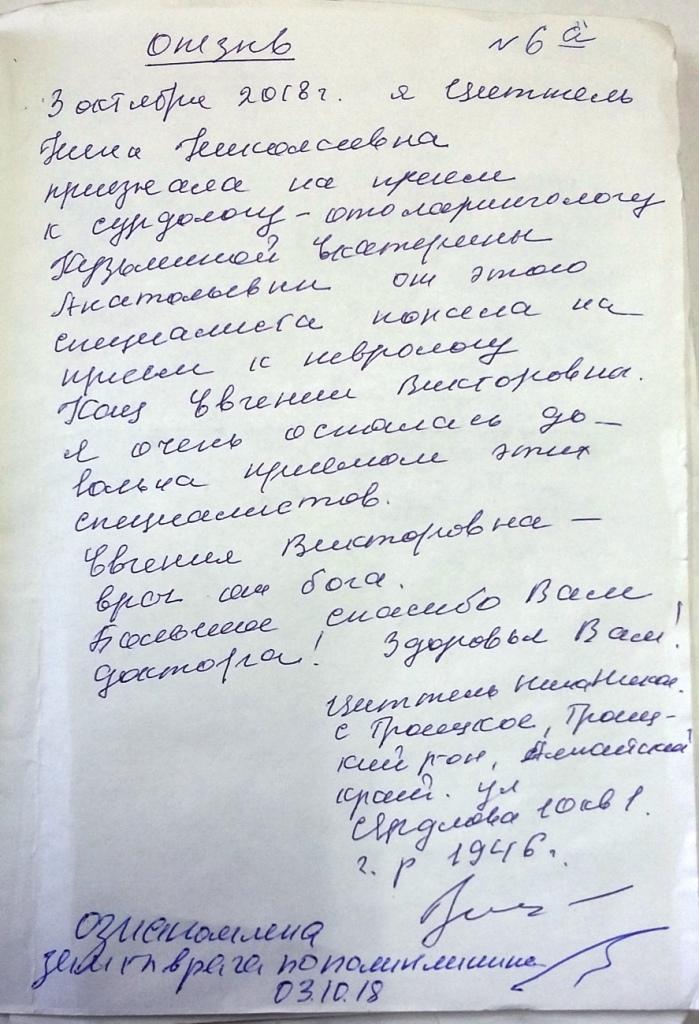 Отзыв № 6 а
3 октября 2018г. я Циттель
Нина Николаевна
приезжала на прием
к сурдологу - отоларингологу
Кузьминой Екатерины
Анатольевны от этого
специалиста попала на
прием к неврологу
Кац Евгении Викторовна.
Я очень осталась до-
вольна приёмом этих
специалистов.
Евгения Викторовна -
врач от бога.
Большое спасибо Вам
доктора! Здоровья Вам!
Циттель Нина Никол.
с Троицкое, Троиц-
кий р-он, Алтайский
край. ул
10 кв 1.
г. р 1946г.
ознакомлена
врача
03.10.18